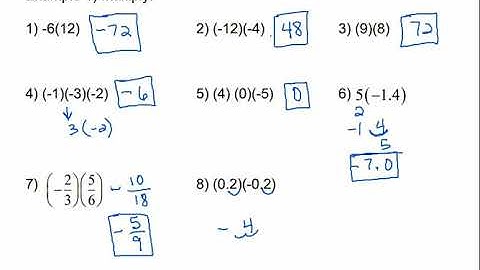 1) -6(12) -72 2) (-12)(-4) 48 3) (9)(8) 72
4) (-1)(-3)(-2) -6 5) (4) (0)(-5) 0 6) 5(-1.4)
3(-2)
2
-1 4
5
-7.0
7) (-2/3)(5/6) -10/18 8) (0.2)(-0.2)
-5/9 - 4